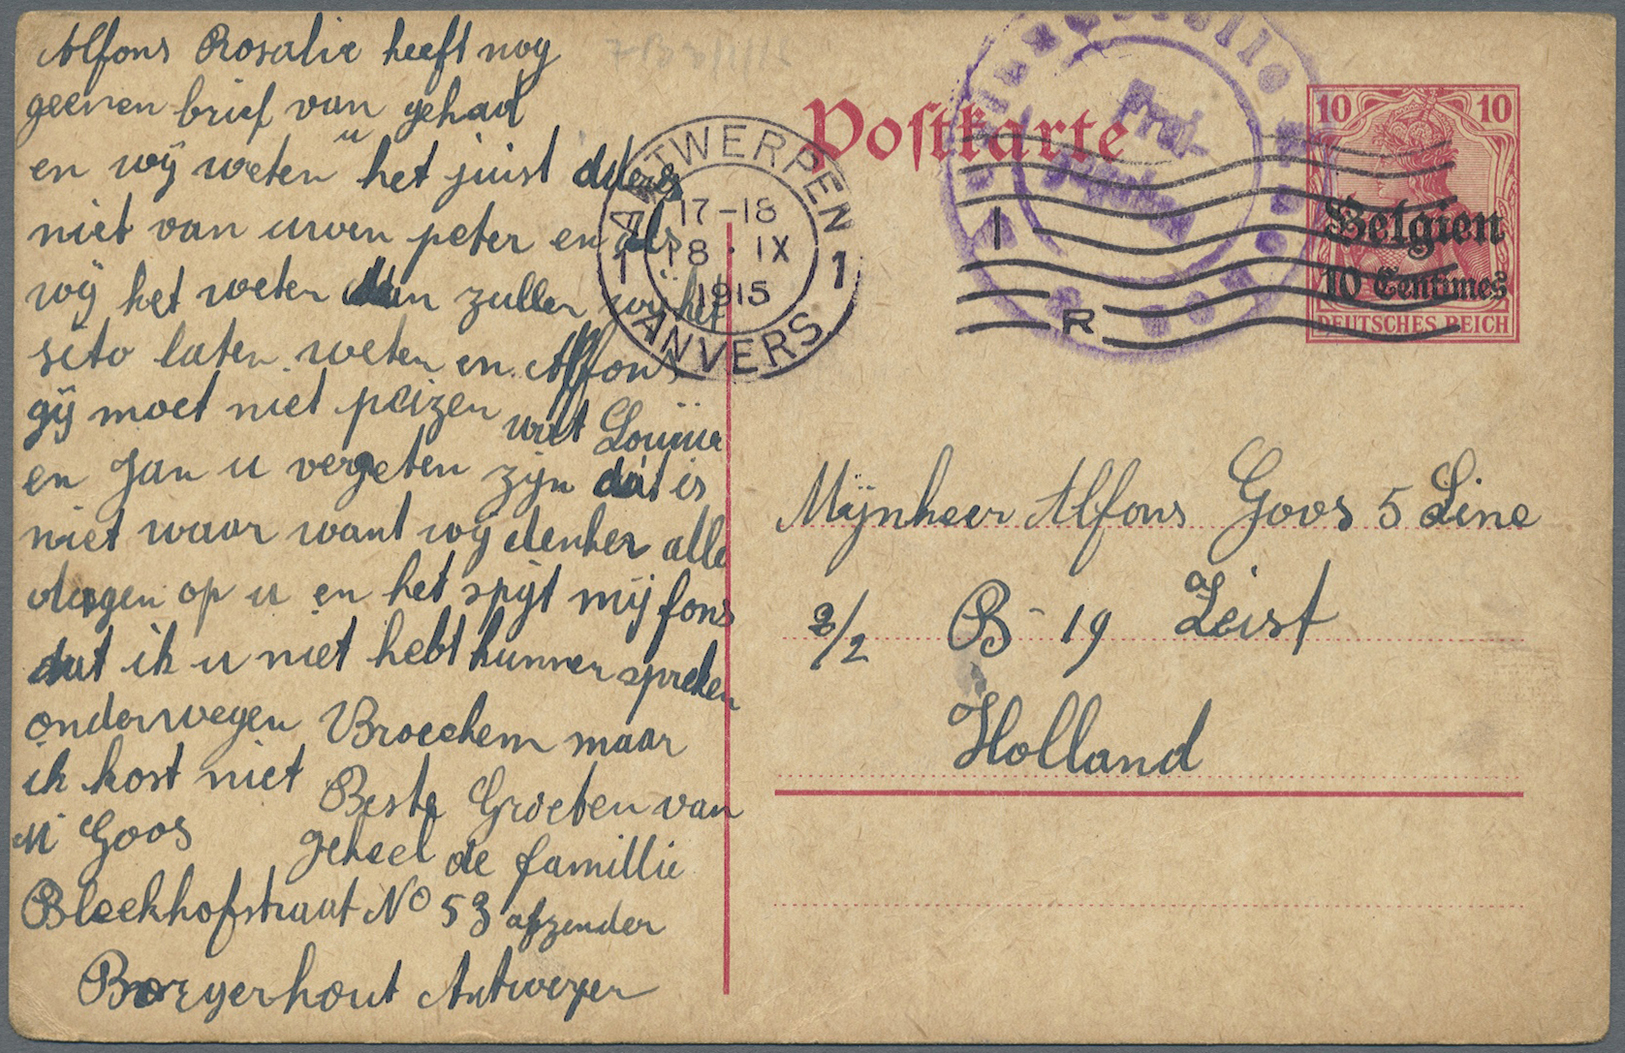 Alfons Rosalie heeft nog
geenen brief van u gehad
en wij weten het juist
niet van uwen peter en als
wij het weten dan zullen wij het
seto laten weten en Alfons
gij moet niet peizen wat Louise
en Jan u vergeten zijn dat is
niet waar want wij denken alle
dagen op u en het spijt mij fons
dat ik u niet hebt kunnen spreken
onderwegen Broechem maar
ik kost niet Beste Groeten van
geheel de famillie
M Goos
Bleekhofstraat No 53 afzender
Borgerhout Antwerpen
Postkarte
10 10
Belgien
10 Centimes
DEUTSCHES REICH
ANTWERPEN
17-18
18 · IX
1915
1 1
ANVERS
1
R
Frei-
gegeben
Mÿnheer Alfons Goos 5 Line
3/2 B-19 Zeist
Holland